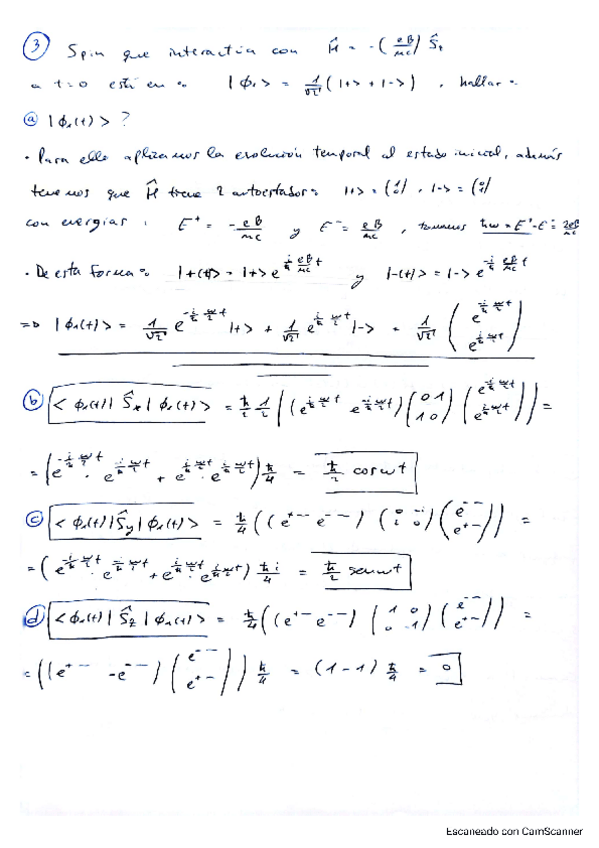 ③ Spin que interactúa con Ĥ = -(eB/mc) Ŝz
a t=0 está en: |ϕ₁> = 1/√2 (|+> + |->), hallar:
ⓐ |ϕ₁(t)> ?
· Para ello aplicamos la evolución temporal al estado inicial, además
tenemos que Ĥ tiene 2 autoestados: |+> = (1 0), |-> = (0 1)
con energías: E⁺ = -eB/mc y E⁻ = eB/mc, tenemos ħω = E⁺-E⁻ = 2eB/mc
· De esta forma: |+(t)> = |+> e^{i/ħ eB/mc t} y |-(t)> = |-> e^{-i/ħ eB/mc t}
=> |ϕ₁(t)> = 1/√2 e^{-i/ħ ω/2 t} |+> + 1/√2 e^{i/ħ ω/2 t} |-> = 1/√2 (e^{-i/ħ ω/2 t} e^{i/ħ ω/2 t})
ⓑ <ϕ₁(t)| Ŝx |ϕ₁(t)> = ħ/2 1/2 ((e^{i/ħ ω/2 t} e^{-i/ħ ω/2 t}) (0 1 1 0) (e^{-i/ħ ω/2 t} e^{i/ħ ω/2 t})) =
ħ/4 = ħ/2 cos ωt
ⓒ <ϕ₁(t)| Ŝy |ϕ₁(t)> = ħ/4 ((e^{+--} e^{---}) (0 -i i 0) (e^{---} e^{+--})) =
ħi/4 = ħ/2 sen ωt
ⓓ <ϕ₁(t)| Ŝz |ϕ₁(t)> = ħ/4 ((e^{+--} e^{---}) (1 0 0 -1) (e^{---} e^{+--})) =
= ((e^{+--} -e^{---}) (e^{---} e^{+--})) ħ/4 = (1-1) ħ/4 = 0
Escaneado con CamScanner